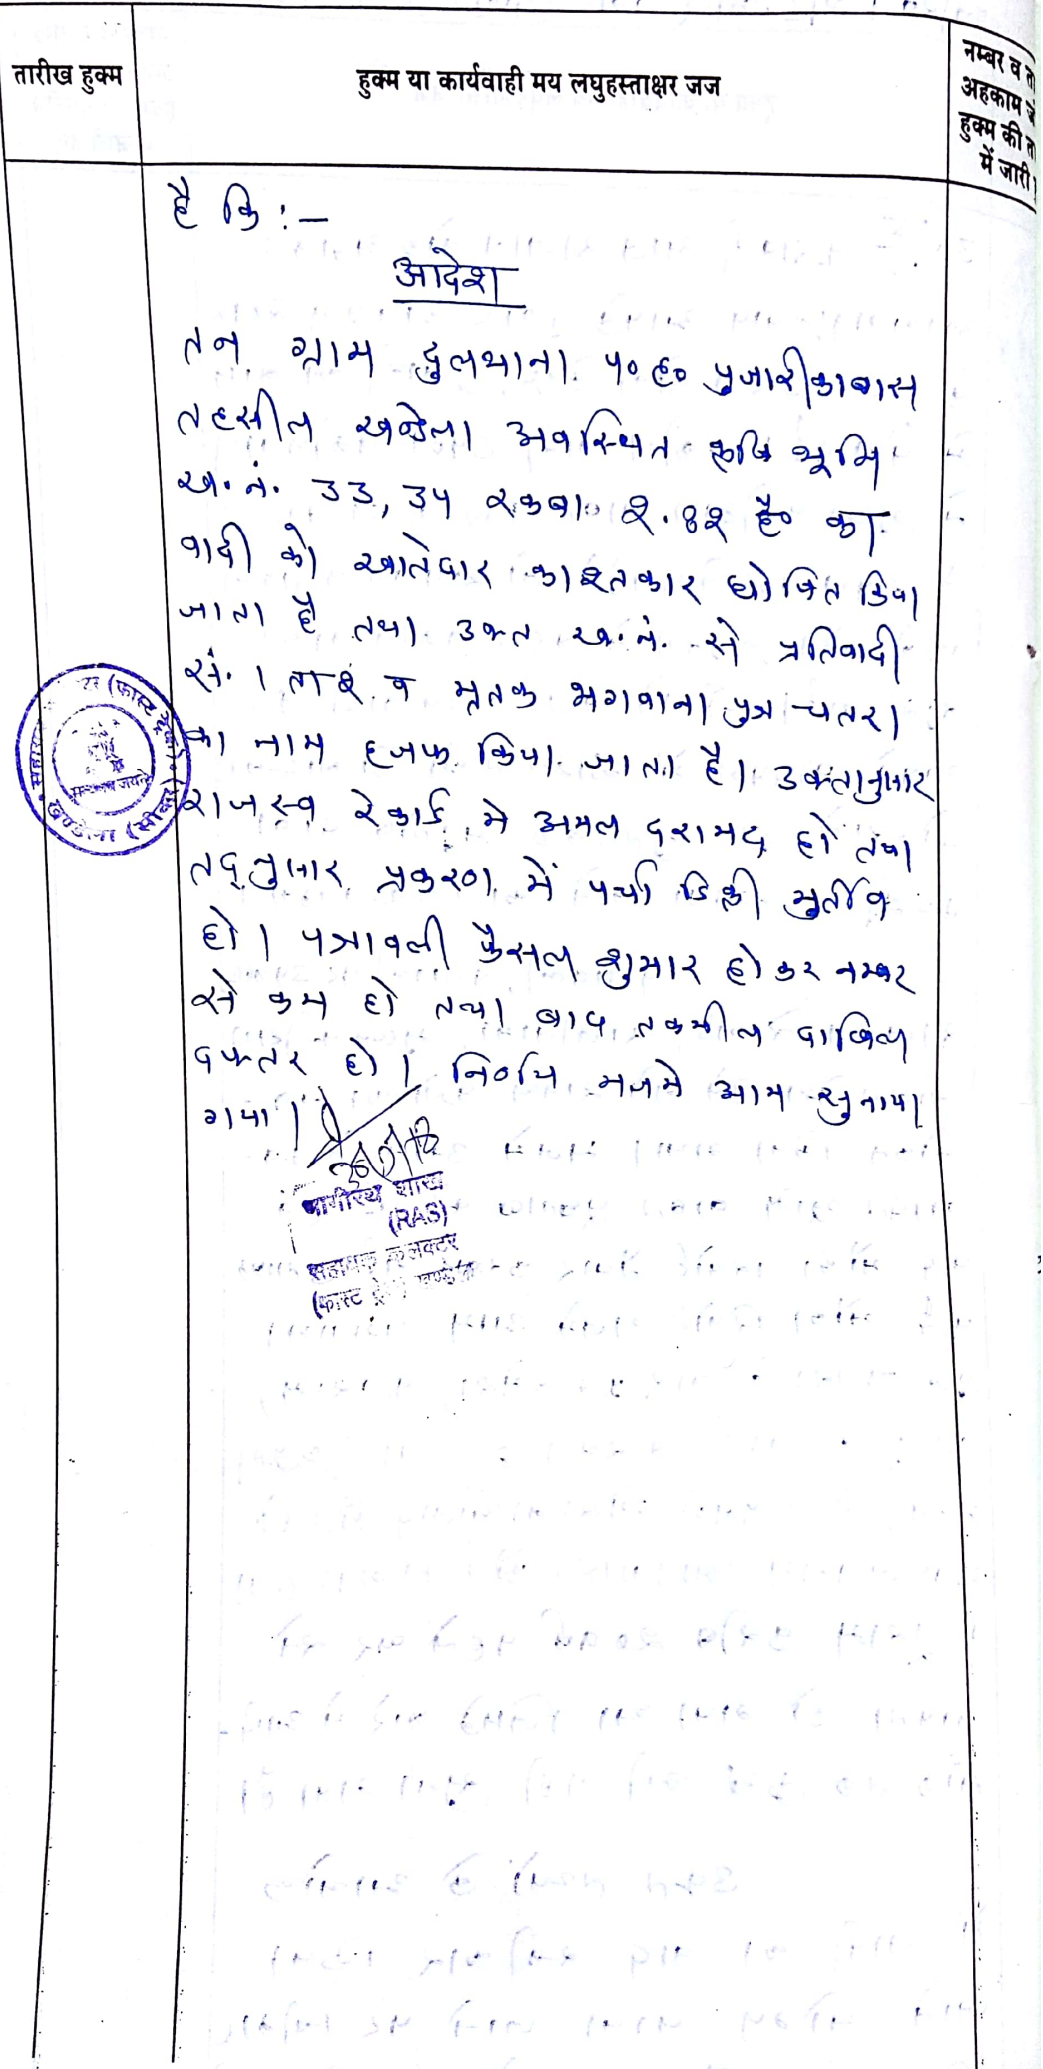 तारीख हुक्म
हुक्म या कार्यवाही मय लघुहस्ताक्षर जज
नम्बर व ता
अहकाम जो
हुक्म की ता
में जारी
है कि :-
आदेश
तन ग्राम दुलथाना प० ह० पुजारीकाबास
तहसील खण्डेला अवस्थित कृषि भूमि
ख. नं. 33, 34 रकबा २.82 है० का
वादी को खातेदार काश्तकार घोषित किया
जाता है तथा उक्त ख. नं. से प्रतिवादी
सं. 1 व मृतक भगवाना पुत्र चतरा
का नाम हजफ किया जाता है। उक्तानुसार
राजस्व रेकार्ड मे अमल दरामद हो तथा
तद्नुसार प्रकरण में पर्चा डिक्री मुर्तीब
हो। पत्रावली फैसल शुमार होकर नम्बर
से कम हो तथा बाद तकमील दाखिल
दफ्तर हो। निर्णय मजमे आम सुनाया
गया।
भागीरथ शाख
(RAS)
सहायक कलक्टर
(फास्ट ट्रेक) खण्डेला
(फास्ट ट्रेक)
खण्डेला (सीकर)